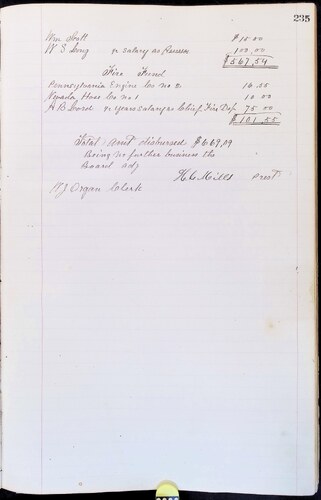 235
Wm Scott $15.00
W S Long yr salary as 100.00
$567.54
Fire Fund
Pennsylvania Engine Co no 2 16.55
Nevada Hose Co no 1 10.00
A B yr years salary as Chief Fire Dep 75.00
$101.55
Total Amt disbursed $669.09
Being no further business the
Board adj
H C Mills Prest
T J Organ Clerk